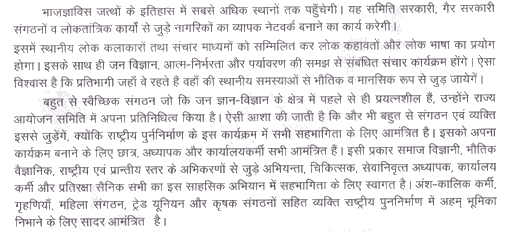 भाजज्ञाविज जत्थों के इतिहास में सबसे अधिक स्थानों तक पहुँचेगी। यह समिति सरकारी, गैर सरकारी
संगठनों व लोकतांत्रिक कार्यों से जुड़े नागरिकों का व्यापक नेटवर्क बनाने का कार्य करेगी।
इसमें स्थानीय लोक कलाकारों तथा संचार माध्यमों को सम्मिलित कर लोक कहावतों और लोक भाषा का प्रयोग
होगा। इसके साथ ही जन विज्ञान, आत्म-निर्भरता और पर्यावरण की समझ से संबंधित संचार कार्यक्रम होंगे। ऐसा
विश्वास है कि प्रतिभागी जहाँ वे रहते हैं वहाँ की स्थानीय समस्याओं से भौतिक व मानसिक रूप से जुड़ जायेगें।
बहुत से स्वैच्छिक संगठन जो कि जन ज्ञान-विज्ञान के क्षेत्र में पहले से ही प्रयत्नशील हैं, उन्होंने राज्य
आयोजन समिति में अपना प्रतिनिधित्व किया है। ऐसी आशा की जाती है कि और भी बहुत से संगठन एवं व्यक्ति
इससे जुड़ेगें, क्योंकि राष्ट्रीय पुर्ननिर्माण के इस कार्यक्रम में सभी सहभागिता के लिए आमंत्रित है। इसको अपना
कार्यक्रम बनाने के लिए छात्र, अध्यापक और कार्यालयकर्मी सभी आमंत्रित हैं। इसी प्रकार समाज विज्ञानी, भौतिक
वैज्ञानिक, राष्ट्रीय एवं प्रान्तीय स्तर के अभिकरणों से जुड़े अभियन्ता, चिकित्सक, सेवानिवृत्त अध्यापक, कार्यालय
कर्मी और प्रतिरक्षा सैनिक सभी का इस साहसिक अभियान में सहभागिता के लिए स्वागत है। अंश-कालिक कर्मी,
गृहणियाँ, महिला संगठन, ट्रेड यूनियन और कृषक संगठनों सहित व्यक्ति राष्ट्रीय पुर्ननिर्माण में अहम् भूमिका
निभाने के लिए सादर आमंत्रित है।